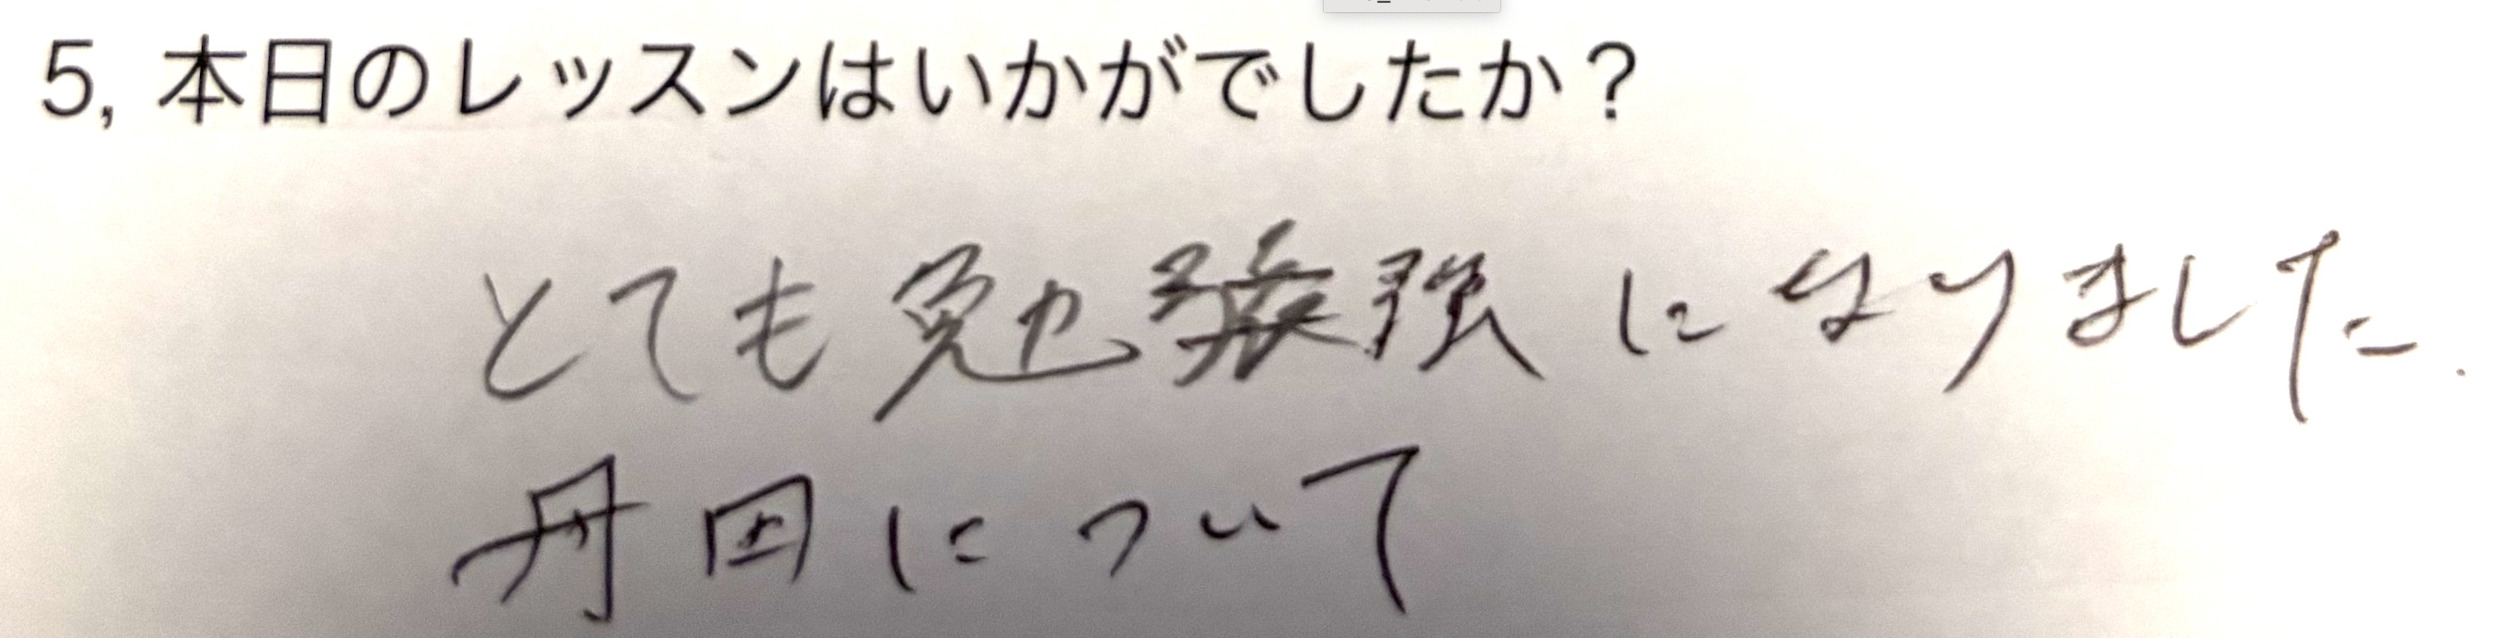 5, 本日のレッスンはいかがでしたか？
とても勉強になりました.
丹田について